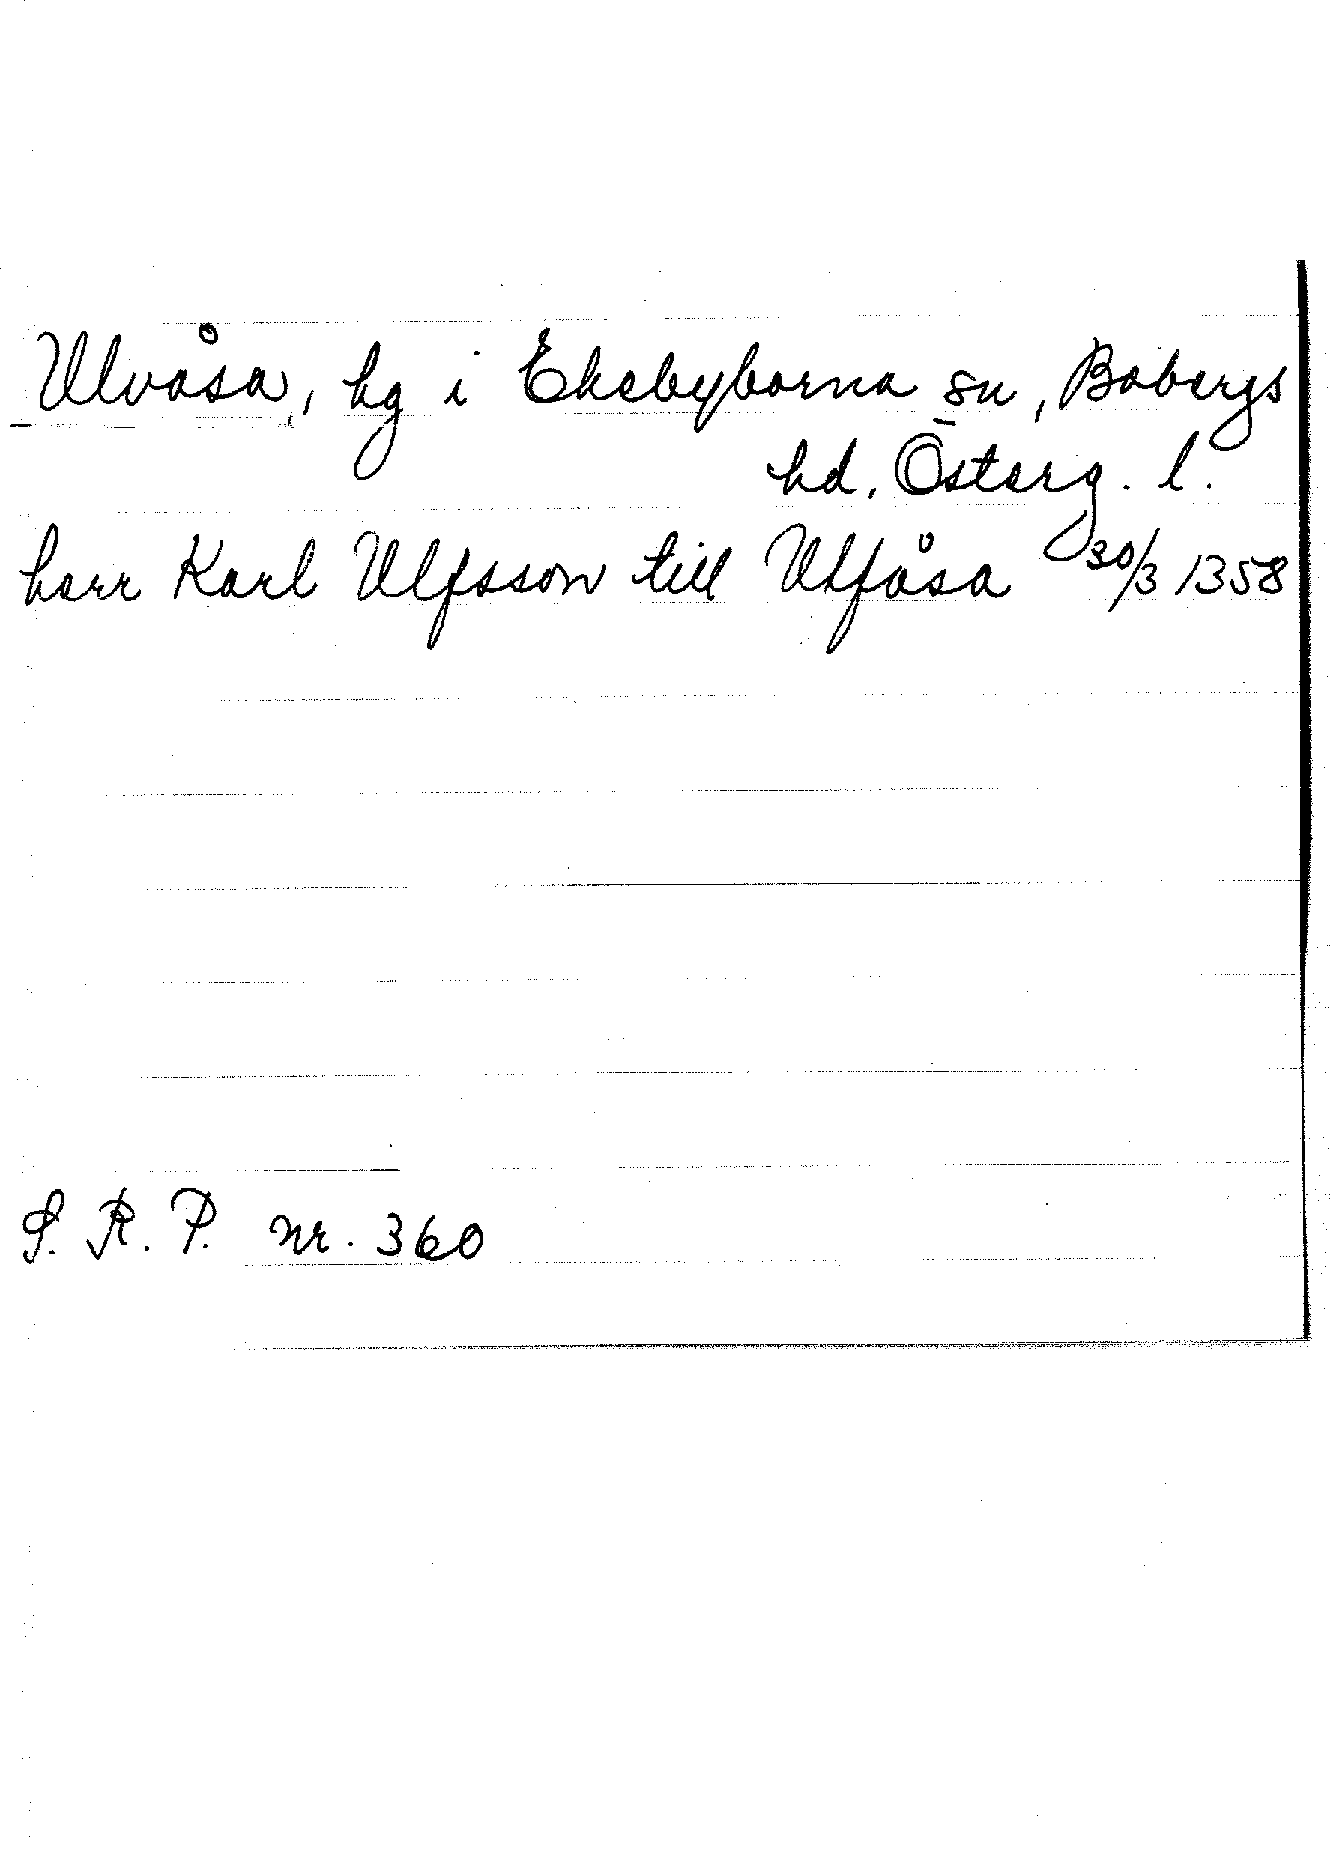 Ulvåsa, hg i Ekebyborna sn, Bobergs
hd, Österg. l.
herr Karl Ulfsson till Ulfåsa 30/3 1358
S. R. P. nr. 360